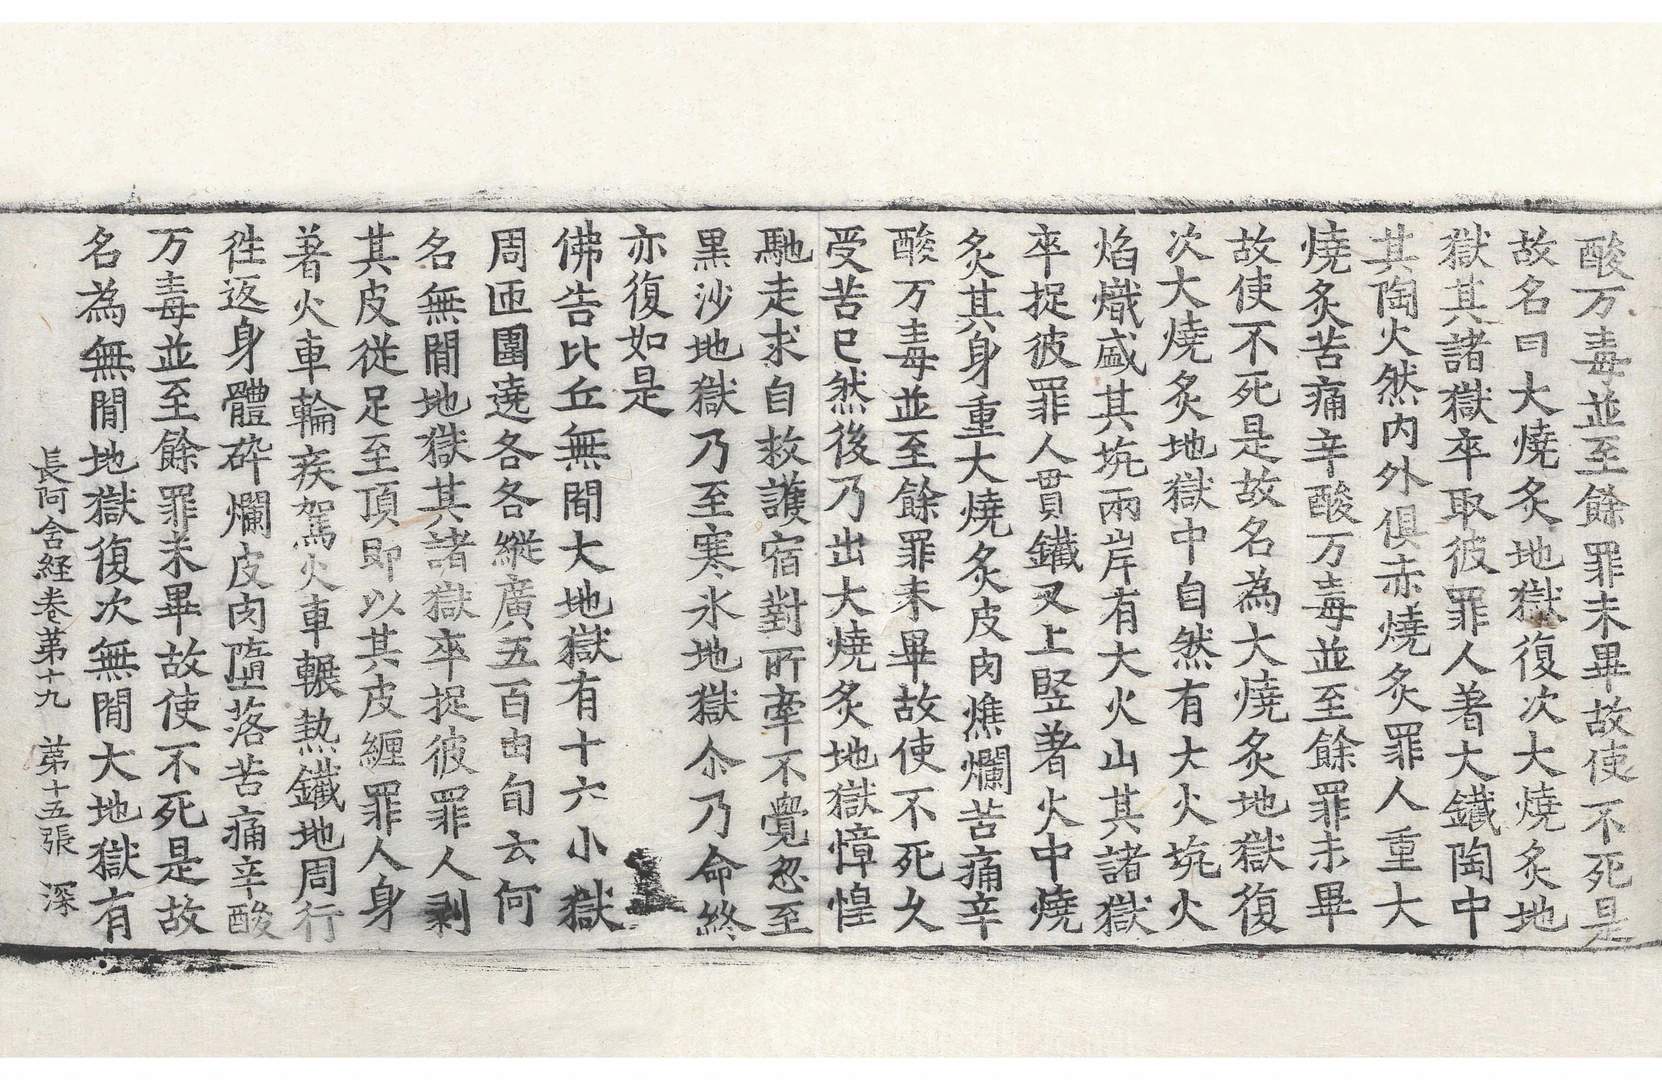 酸万毒並至餘罪未畢故使不死是
故名曰大燒炙地獄復次大燒炙地
獄其諸獄卒取彼罪人著大鐵陶中
其陶火然內外俱赤燒炙罪人重大
燒炙苦痛辛酸万毒並至餘罪未畢
故使不死是故名為大燒炙地獄復
次大燒炙地獄中自然有大火坑火
焰熾盛其坑兩岸有大火山其諸獄
卒捉彼罪人貫鐵叉上竪著火中燒
炙其身重大燒炙皮肉燋爛苦痛辛
酸万毒並至餘罪未畢故使不死久
受苦已然後乃出大燒炙地獄慞惶
馳走求自救護宿對所牽不覺忽至
黑沙地獄乃至寒氷地獄尒乃命終
亦復如是
佛告比丘無間大地獄有十六小獄
周匝圍遶各各縱廣五百由旬云何
名無間地獄其諸獄卒捉彼罪人剥
其皮從足至頂即以其皮纏罪人身
著火車輪疾駕火車輾熱鐵地周行
徃返身體碎爛皮肉墮落苦痛辛酸
万毒並至餘罪未畢故使不死是故
名為無間地獄復次無間大地獄有
長阿含経卷第十九 第十五張 深